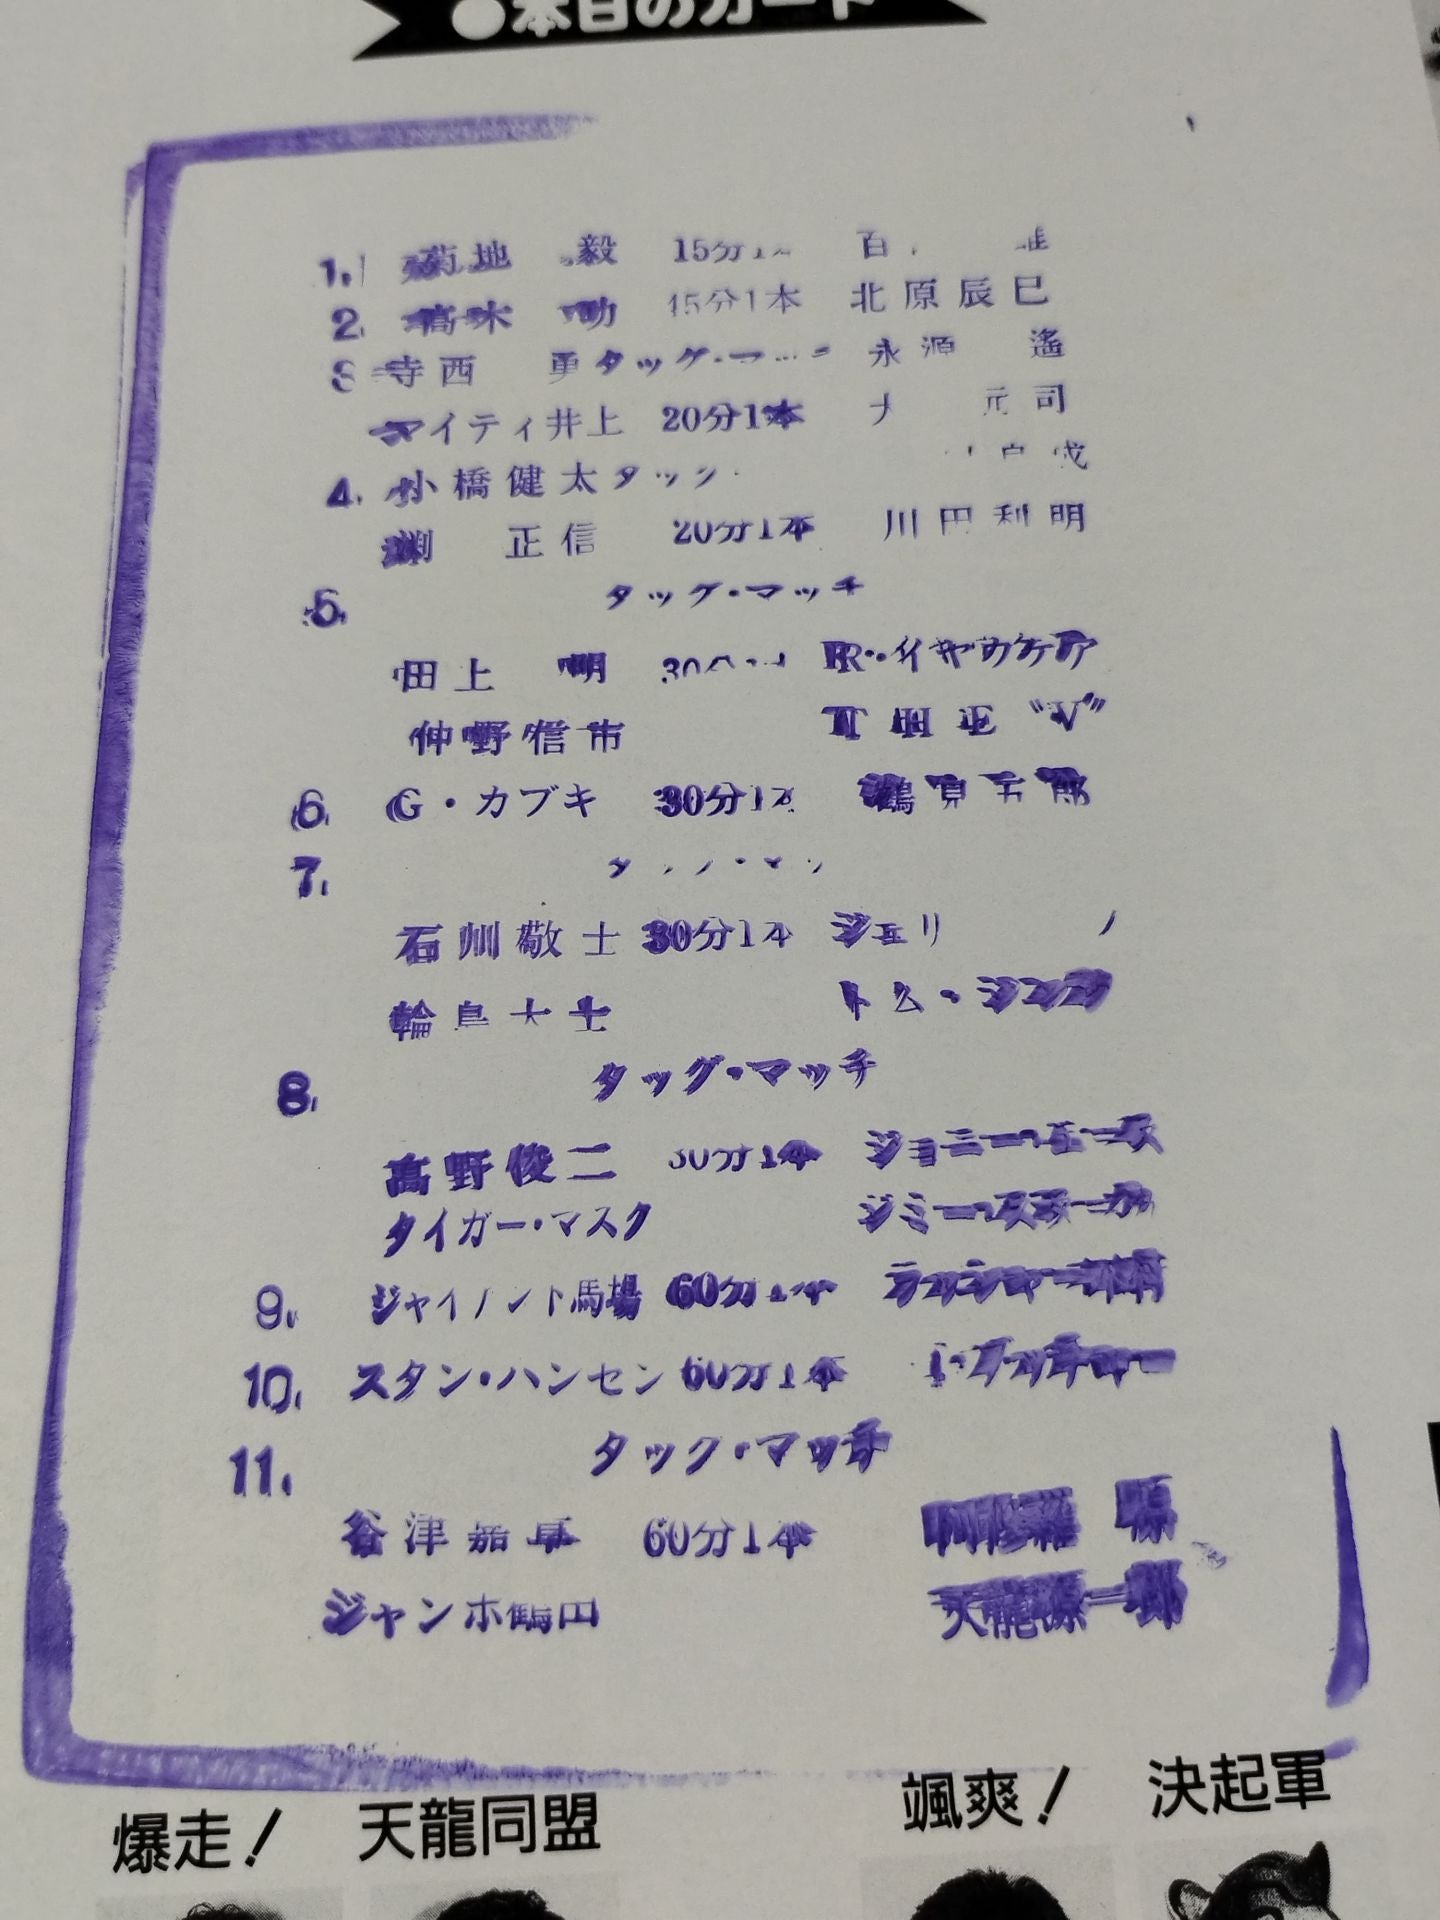 ●本日のカード
1. 菊地 毅 15分1本 百
2. 高木 功 15分1本 北原辰巳
3 寺西 勇 タッグ・マッチ 永源 遙
マイティ井上 20分1本 大 元司
4. 小橋健太 タッグ
渕 正信 20分1本 川田利明
5. タッグ・マッチ
田上 明 30分1本 R・イヤウケア
仲野信市 THE “V”
6 G・カブキ 30分1本 鶴見五郎
7. タッグ・マッ
石川敬士 30分1本 ジェリ
輪島大士 トム・
8. タッグ・マッチ
高野俊二 30分1本 ジョニー・エース
タイガー・マスク ジミー・スヌーカ
9. ジャイアント馬場 60分1本 ラッシャー木村
10. スタン・ハンセン 60分1本 ブッチャー
11. タッグ・マッチ
谷津嘉章 60分1本 阿修羅 原
ジャンボ鶴田 天龍源一郎
爆走! 天龍同盟 颯爽! 決起軍